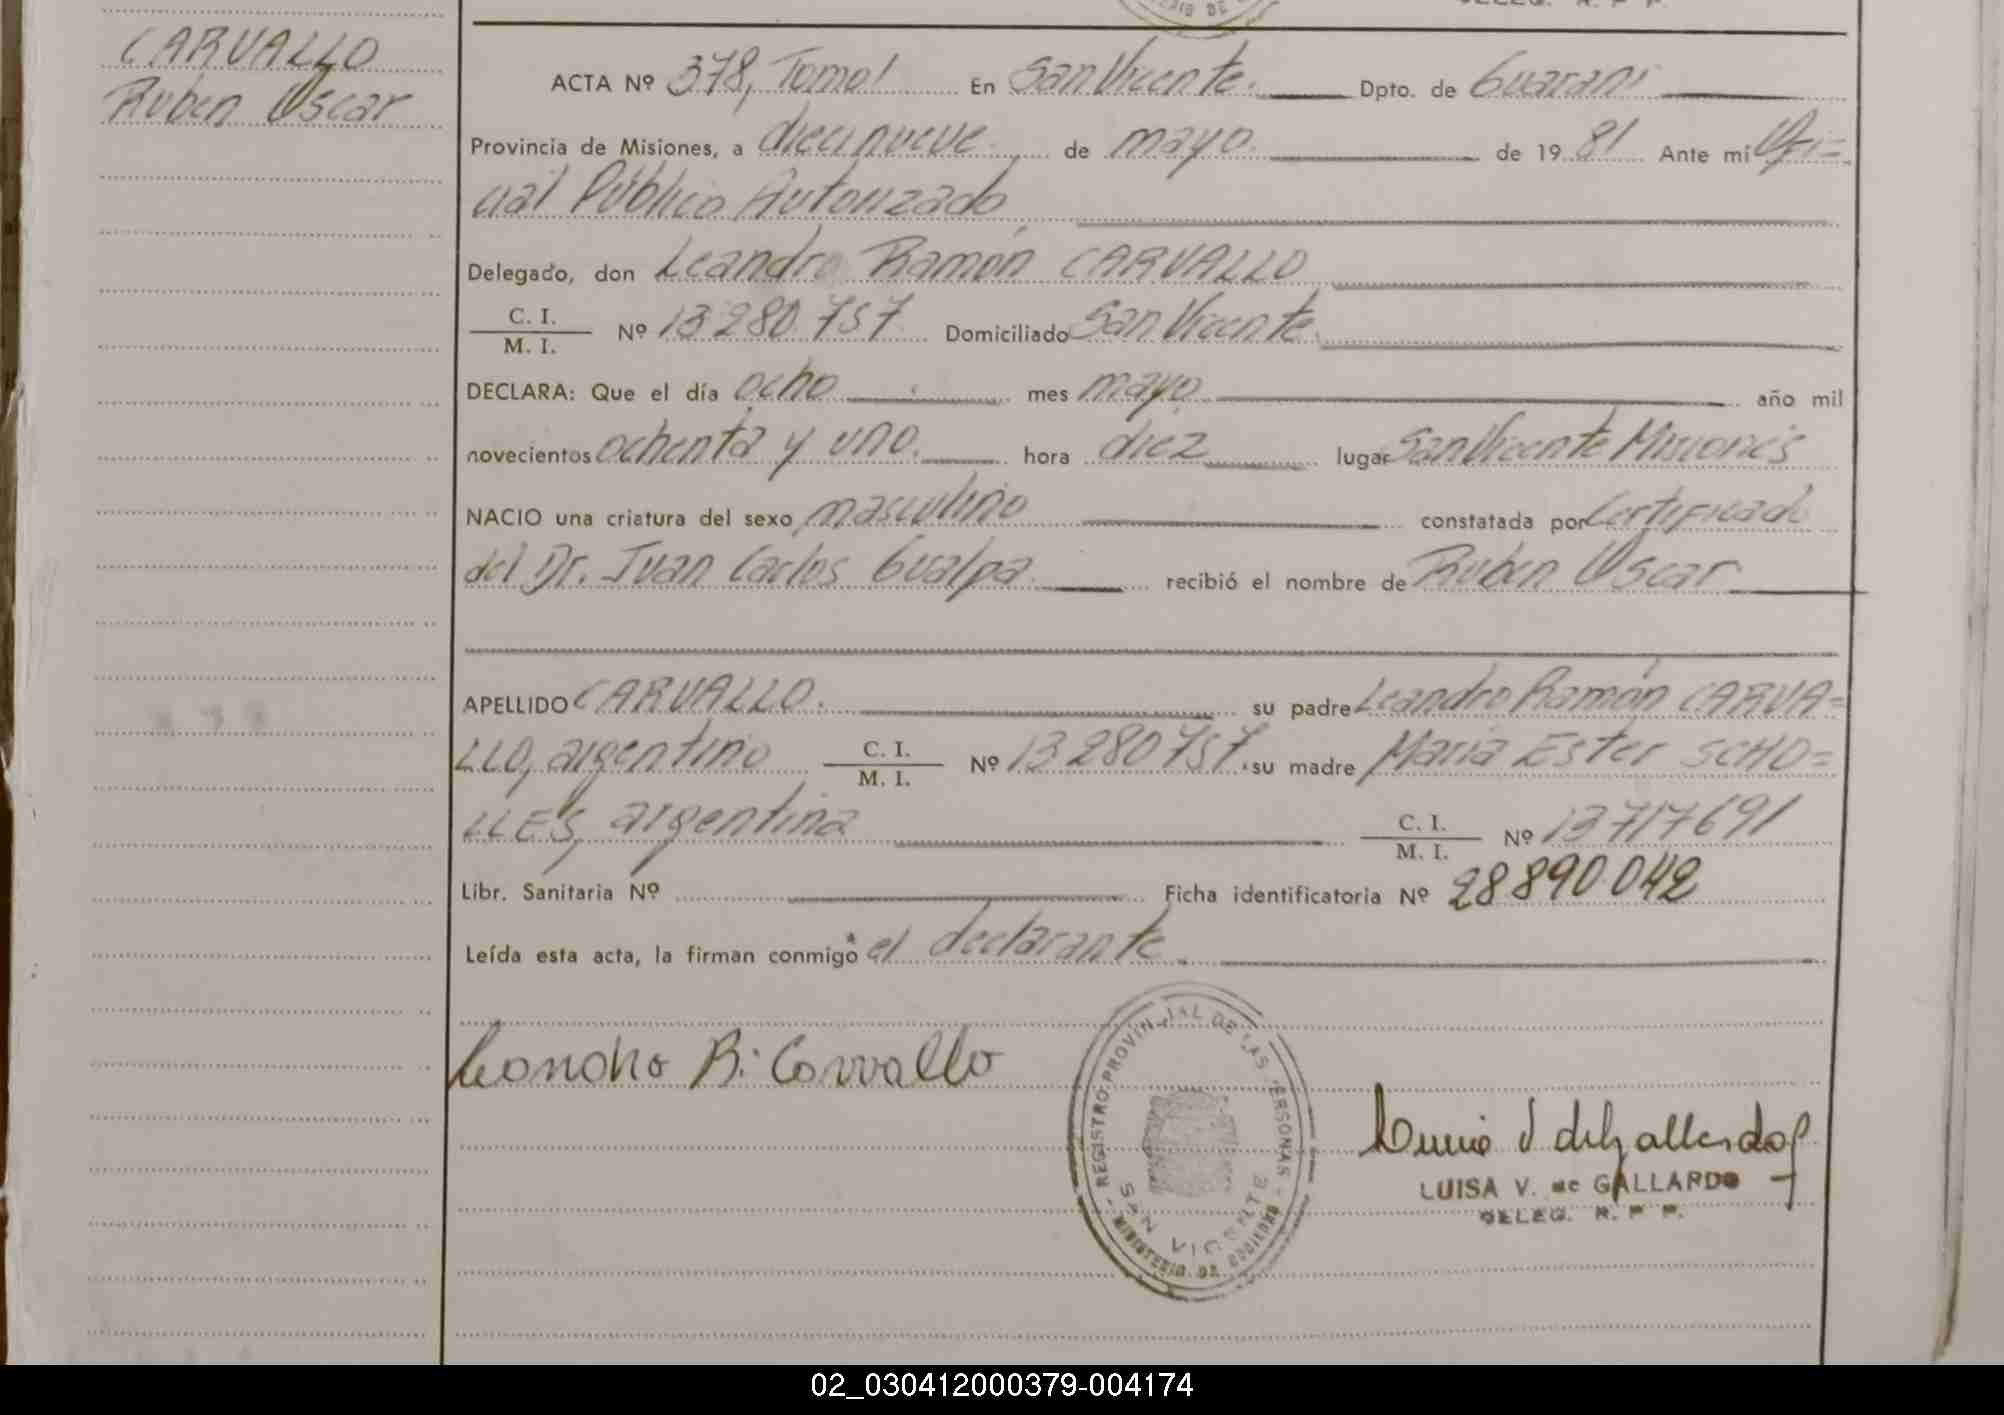 CARVALLO
Ruben Oscar
DELEG. R. P P.
ACTA Nº 378, Tomo I En San Vicente. Dpto. de Guarani
Provincia de Misiones, a diecinueve de mayo de 19 81 Ante mi Ofi=
cial Público Autorizado
Delegado, don Leandro Ramón CARVALLO
C. I.
M. I. Nº 13.280.757 Domiciliado San Vicente.
DECLARA: Que el día ocho mes mayo año mil
novecientos ochenta y uno. hora diez lugar San Vicente Misiones
NACIO una criatura del sexo masculino constatada por Certificado
del Dr. Juan Carlos Gualpa recibió el nombre de Ruben Oscar
APELLIDO CARVALLO. su padre Leandro Ramón CARVA=
LLO, argentino C. I. M. I. Nº 13280757. su madre Maria Ester SCHO=
LLES, argentina C. I. M. I. Nº 13717691
Libr. Sanitaria Nº Ficha identificatoria Nº 28890.042
Leída esta acta, la firman conmigo el declarante.
Leandro R. Carvallo
REGISTRO PROVINCIAL DE LAS PERSONAS
SAN VICENTE
MINISTERIO DE GOBIERNO
LUISA V. de GALLARDO
DELEG. R. P P.
02_030412000379-004174